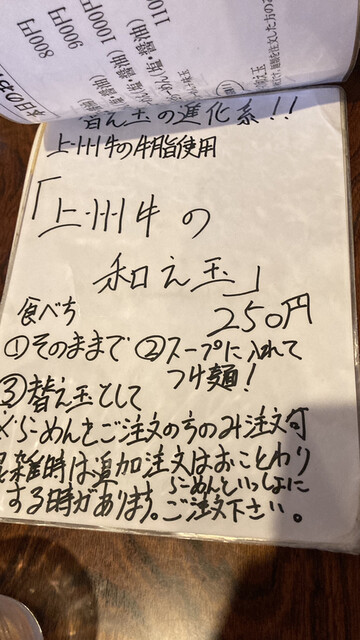 800円
900円
1000円
替え玉の進化系!!
上州牛の牛脂使用
「上州牛の
和え玉」
食べ方
250円
①そのままで ②スープに入れて
つけ麺!
③替え玉として
※らーめんをご注文の方のみ注文可
混雑時は追加注文はおことわり
する時があります。らーめんといっしょに
ご注文下さい。